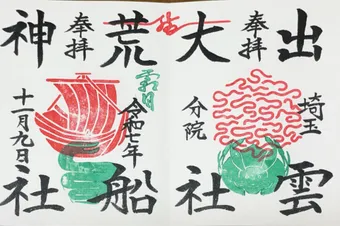 出雲
埼玉
奉拝
大社
分院
結
荒船
令和七年
霜月
奉拝
神社
十一月九日